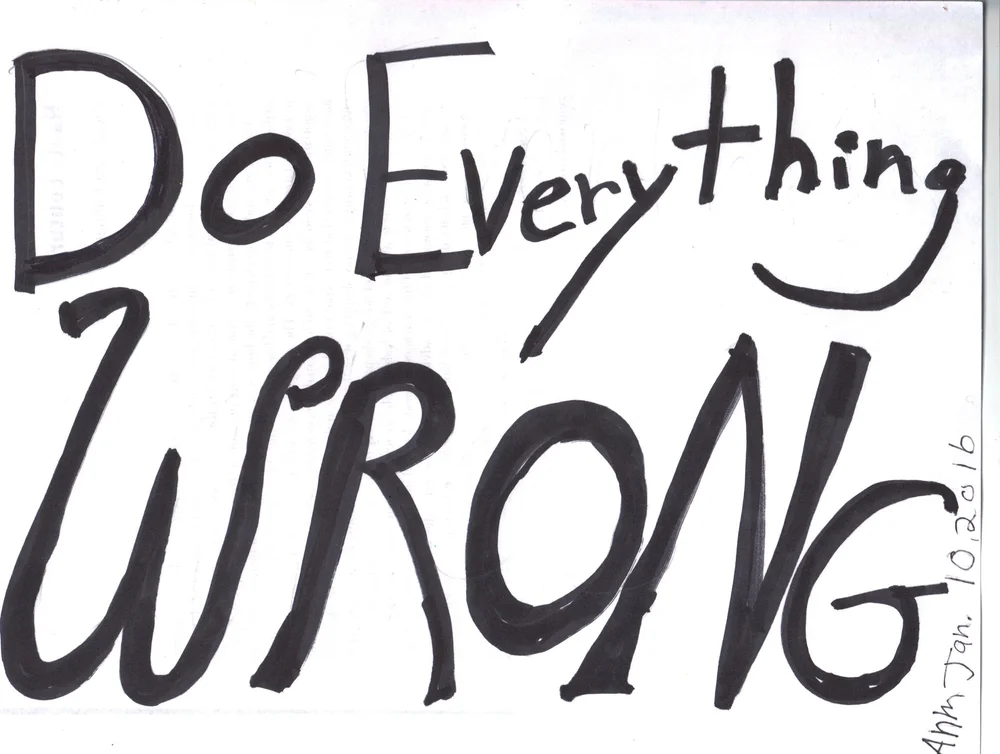 Do Everything
WRONG
Jan. 10, 2016